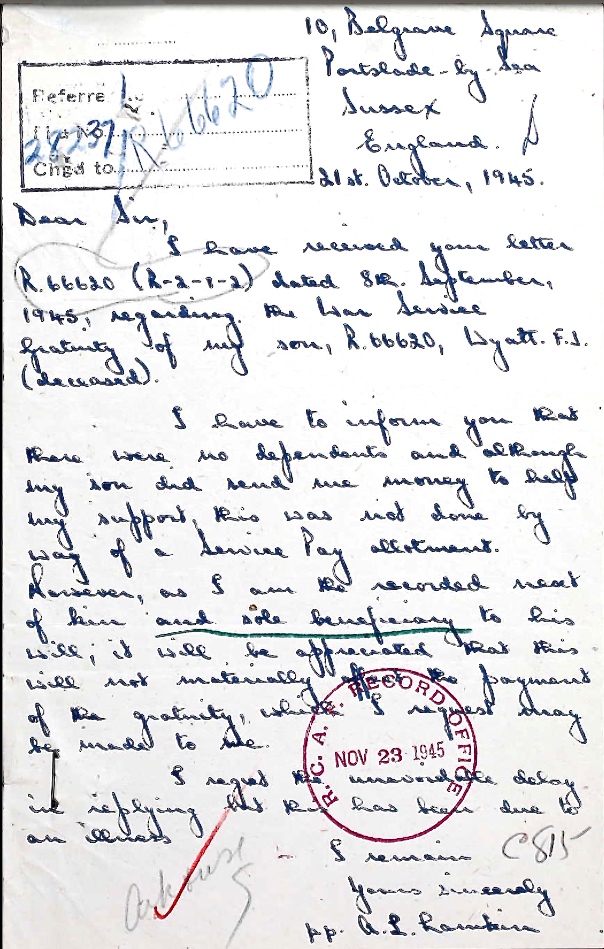 10, Belgrave Square
Portslade-by-Sea
Sussex
England.
21st. October, 1945.
Referre
28237
R 66620
Chgd to
Dear Sir,
I have received your letter
R.66620 (R-2-1-2) dated 8th. September,
1945, regarding the War Service
Gratuity of my son, R.66620, Wyatt. F.J.
(deceased).
I have to inform you that
there were no dependents and although
my son did send me money to help
my support, this was not done by
way of a Service Pay allotment.
However, as I am the recorded next
of kin and sole beneficiary to his
will, it will be appreciated that this
will not materially affect the payment
of the gratuity, which I request may
be made to me.
R.C.A.F. RECORD OFFICE
NOV 23 1945
I regret the unavoidable delay
in replying but this has been due to
an illness
I remain
C815
Yours sincerely
pp. A.L.